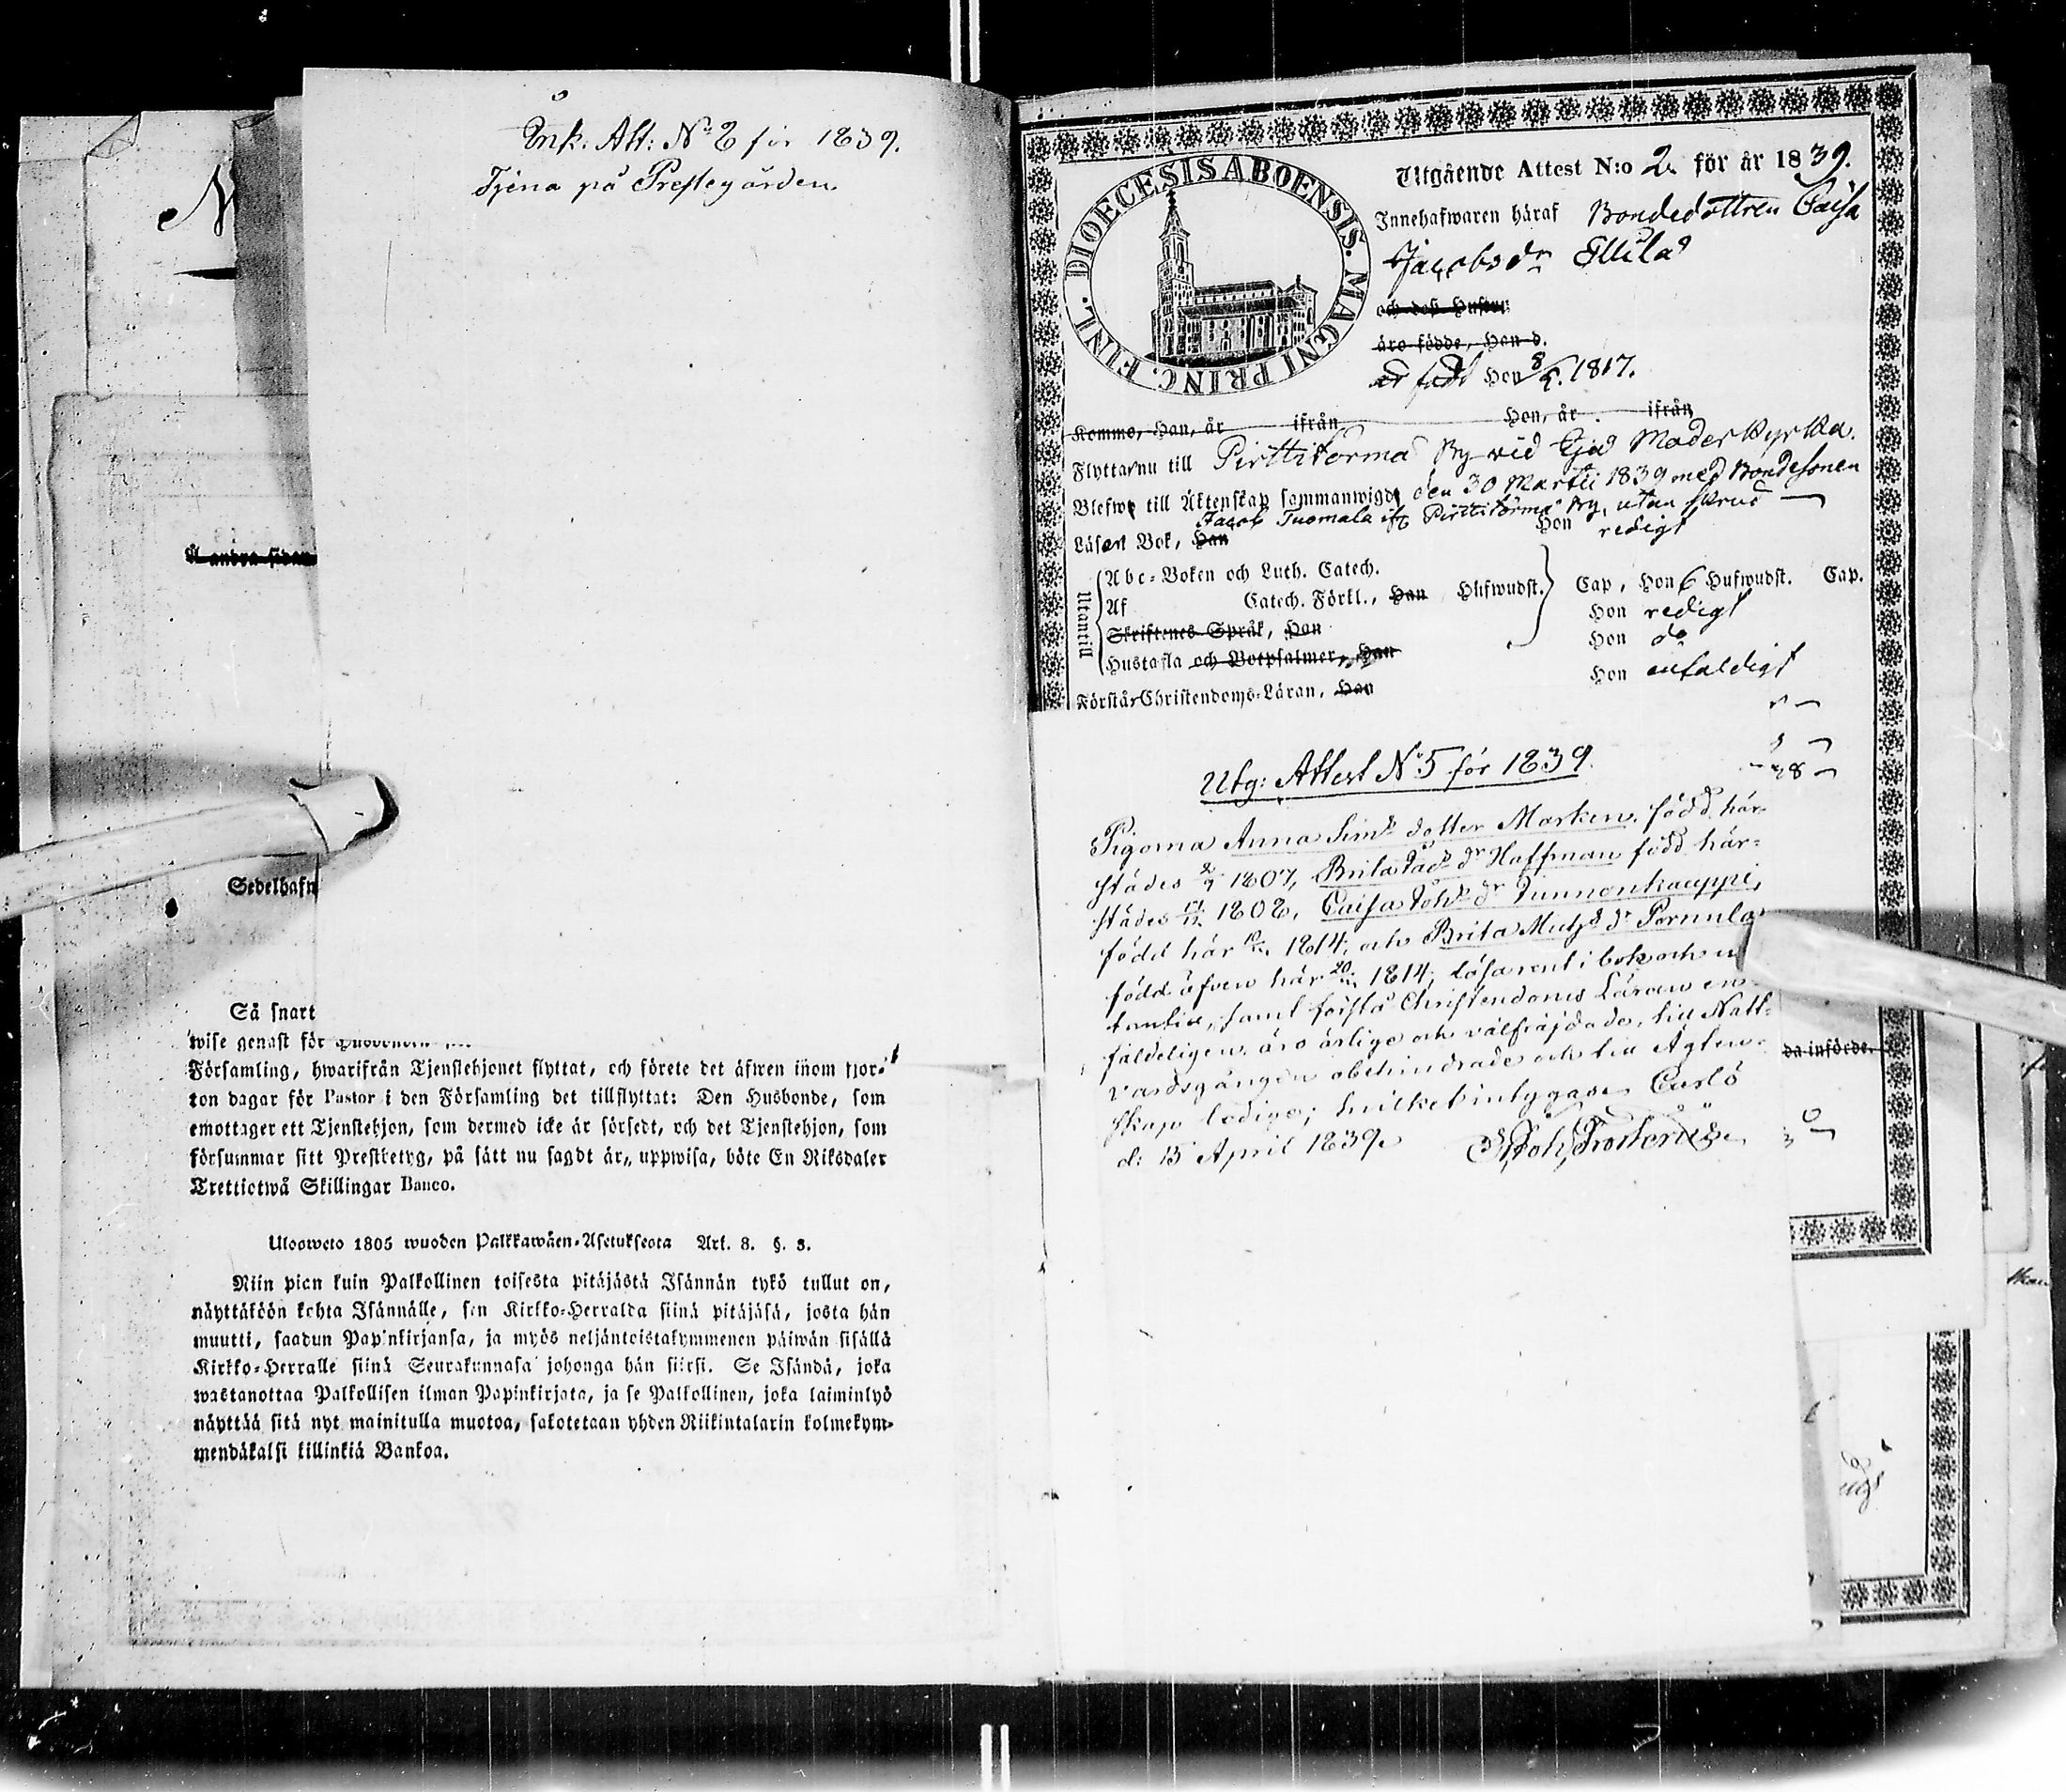 Ink. Att: No 8 för 1839.
Tjena på Prestegården
Å andra sidan
Sedelhafn
Så snart
wise genast för
Församling, hwarifrån Tjenstehjonet flyttat, och förete det äfwen inom fjor-
ton dagar för Pastor i den Församling det tillflyttat: Den Husbonde, som
emottager ett Tjenstehjon, som dermed icke är försedt, och det Tjenstehjon, som
försummar sitt Prestbetyg, på sätt nu sagdt är, uppwisa, böte En Riksdaler
Trettiotwå Skillingar Banco.
Ulosweto 1805 wuoden Palkkawäen-Asetuksesta Art. 8. §. 3.
Niin pian kuin Palkollinen toisesta pitäjästä Isännän tykö tullut on,
näyttäköön kohta Isännälle, sen Kirkko-Herralda siinä pitäjäsä, josta hän
muutti, saadun Papinkirjansa, ja myös neljäntoistakymmenen päiwän sisällä
Kirkko-Herralle siinä Seurakunnasa johonga hän siirsi. Se Isändä, joka
wastanottaa Palkollisen ilman Papinkirjata, ja se Palkollinen, joka laiminlyö
näyttää sitä nyt mainitulla muotoa, sakotetaan yhden Riikintalarin kolmekym-
mendäkaksi killinkiä Bankoa.
DIOECESIS ABOENSIS. MAGNI PRINC. FINL.
Utgående Attest N:o 2 för år 1839.
Innehafwaren häraf Bondedottren Caisa
Jacobsdr Ellilä
och dess Hustru
äro födde, Han d.
är född Hon 8/5. 1817.
Kommo, Han, år ifrån Hon, år ifrån
Flyttar nu till Pirttikorma By wid Eja Moderkyrka.
Blefwe till Äktenskap sammanwigde den 30 Martii 1839 med Bondesonen
Jacob Tuomala ifr Pirttikorma By, utan skrud
Läser i Bok, Han Hon redigt
Utantill
Abc-Boken och Luth. Catech.
Af Catech. Förkl., Han Hufwudst. Cap, Hon 6 Hufwudst. Cap.
Skriftenes Språk, Han Hon redigt
Hustafla och Botpsalmer, Han Hon do
Förstår Christendoms-Läran, Han Hon enfaldigt
Utg: Attest No 5 för 1839.
Pigorna Anna Sims dotter Marken, född här-
städes 1807, Brita dr Hoffman född här-
städes 1808, Caisa Johs dr Tunnonkauppi,
född här 1814, och Brita Mich dr Pernula
född äfven här 20 1814, läsa rent i bok och u
tantill, samt förstå Christendoms Läran en-
faldeligen, äro ärlige och välfräjdade, till Natt-
vardsgången obehindrade och till Äkten-
skap ledige; hvilket intygas. Carlö
d: 13 April 1839.
da införde.